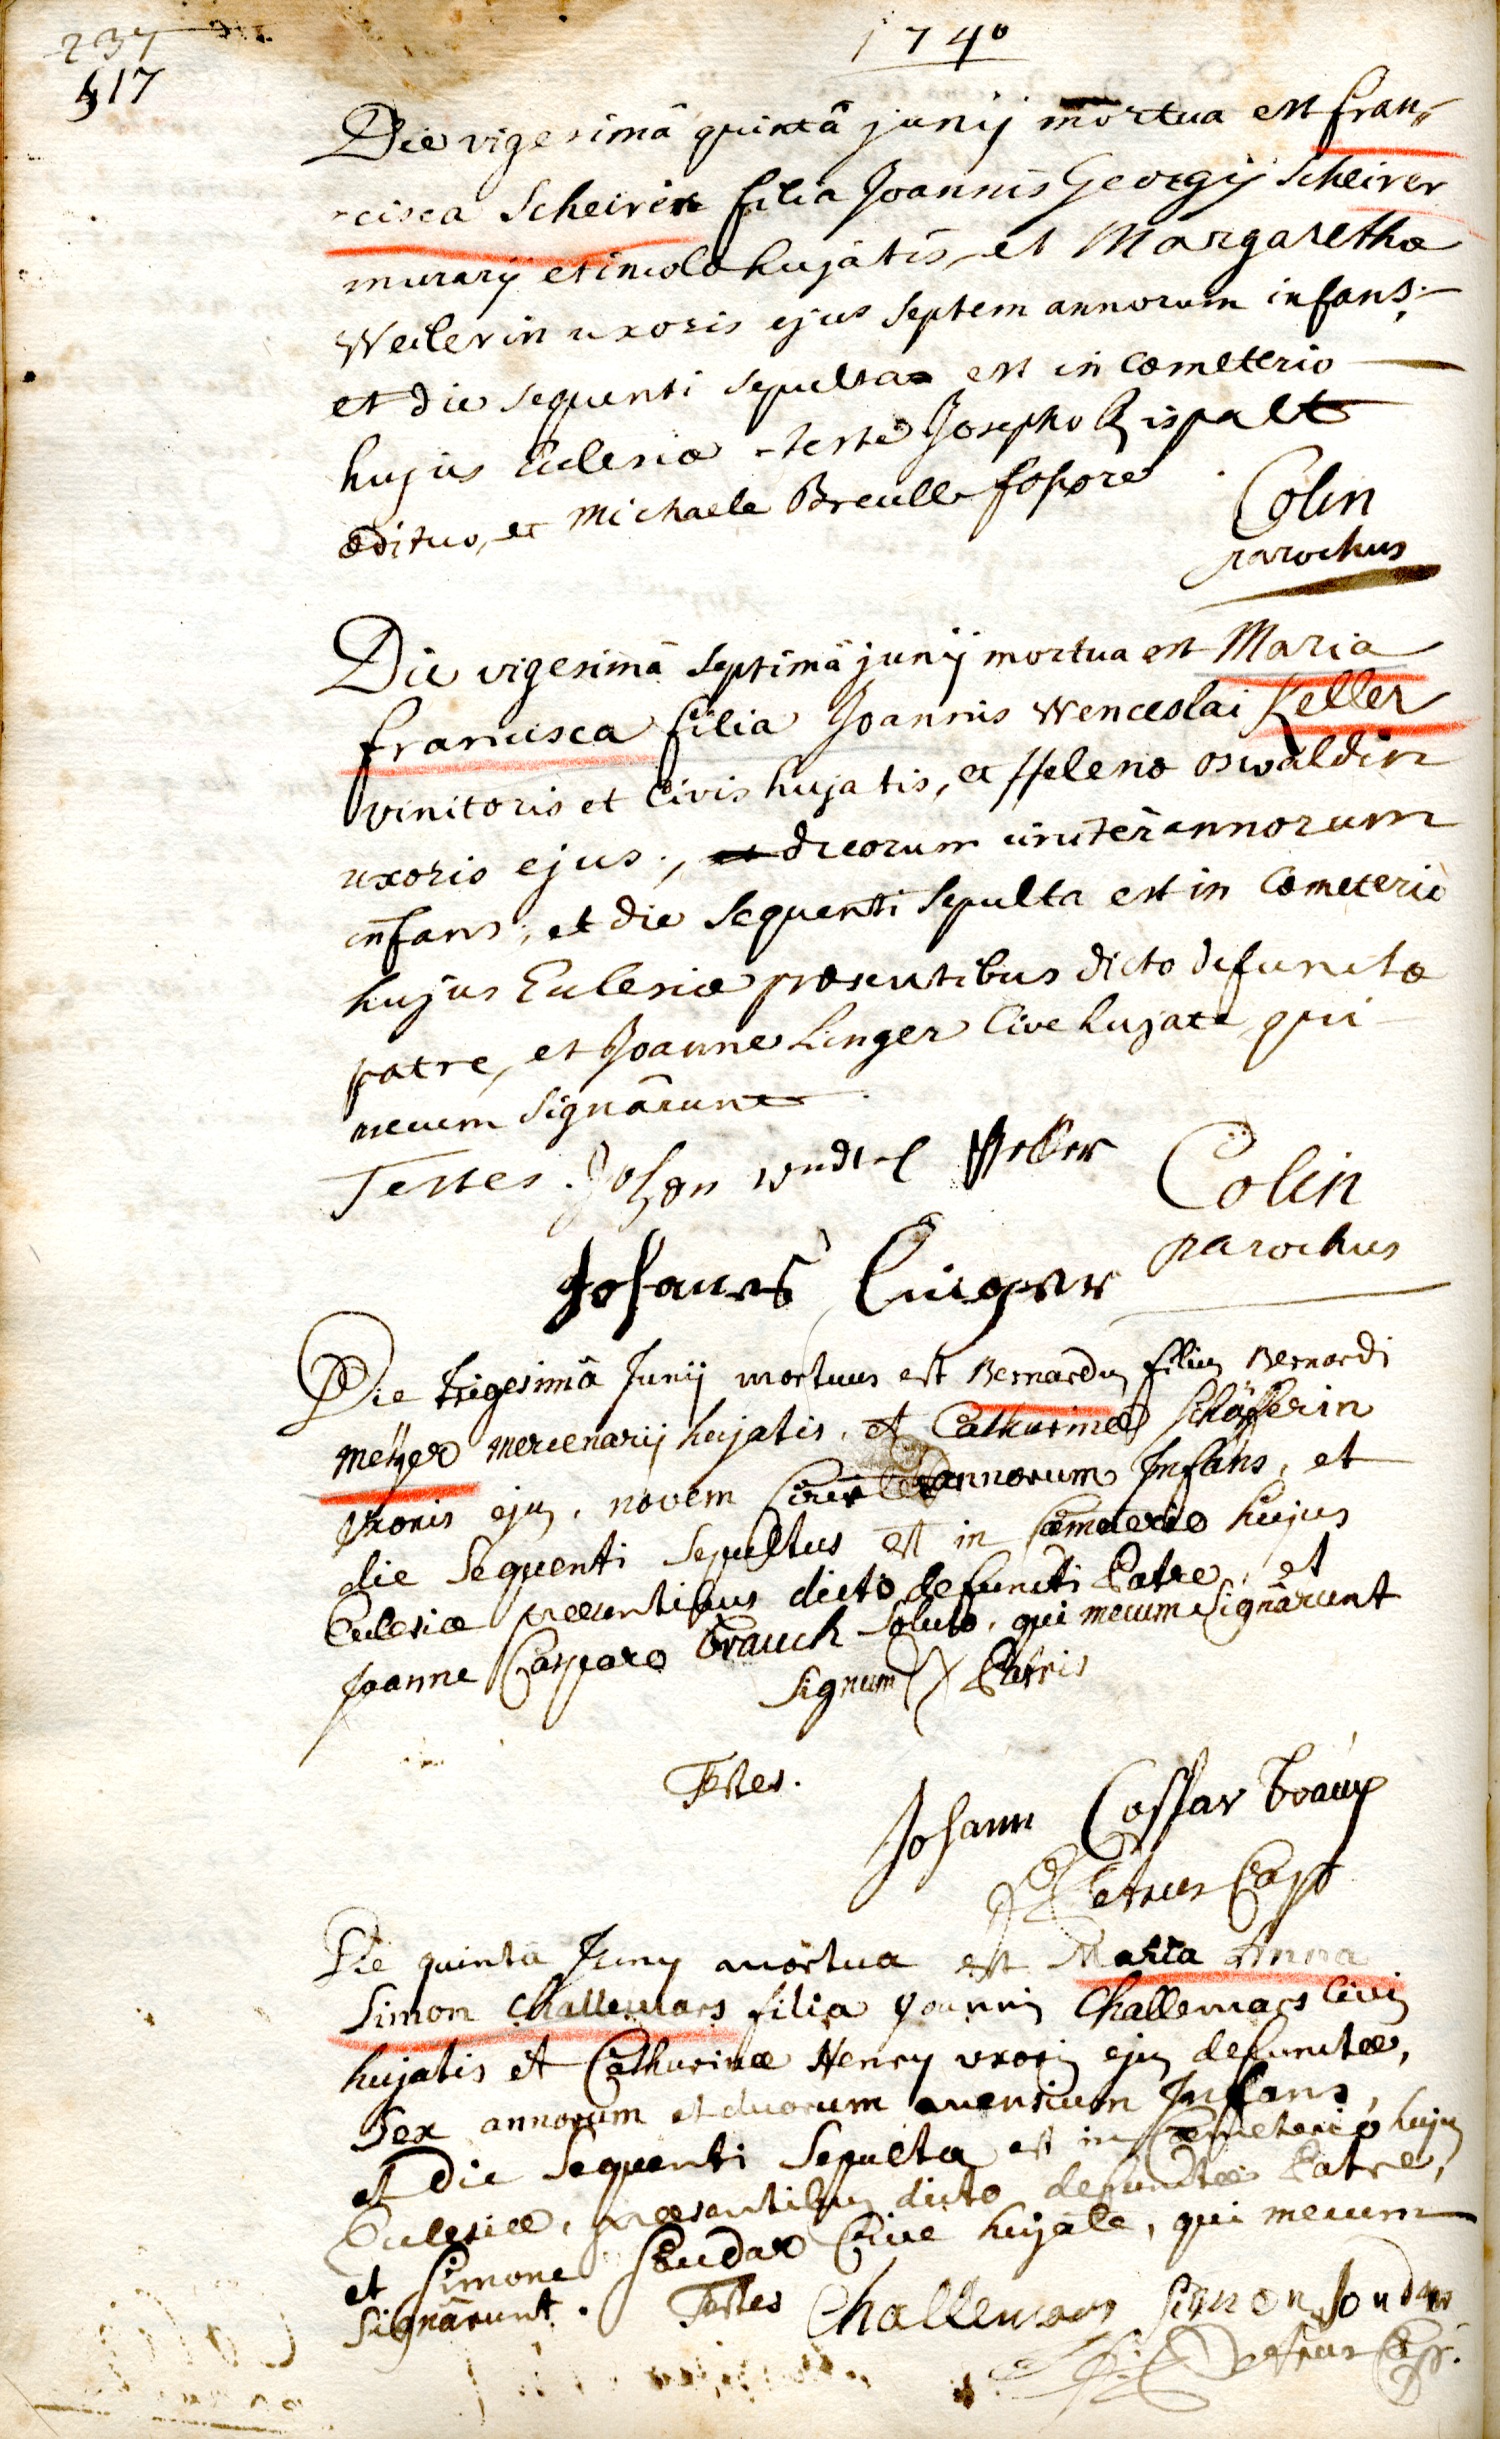 237
517
1740
Die vigesimâ quintâ junij mortua est fran-
cisca Scheirin filia Joannis Georgij Scheirer
murarij et incolæ hujatis, et Margarethæ
Weilerin uxoris ejus septem annorum infans;
et die sequenti sepulta est in cœmeterio
hujus Ecclesiæ teste Josepho Rispalt
ædituo, et Michaele Breulle fossore
Colin
parochus
Die vigesimâ septimâ junij mortua est Maria
francisca filia Joannis Wenceslai Keller
vinitoris et Civis hujatis, et Helenæ oswaldin
uxoris ejus, duorum circiter annorum
infans; et die sequenti sepulta est in Cœmeterio
hujus Ecclesiæ præsentibus dicto defunctæ
patre, et Joanne Linger Cive hujate qui
mecum signârunt
Testes. Johan wndel Keller
Colin
parochus
Johannes Linger
Die trigesimâ Junij mortuus est Bernardus filius Bernardi
metzger mercenarij hujatis, et Catharinæ schäfferin
uxoris ejus, novem Circiter annorum Infans, et
die sequenti sepultus est in Cœmeterio hujus
Ecclesiæ præsentibus dicto defuncti Patre, et
Joanne Casparo Brauch soluto, qui mecum signârunt
Signum X Patris
Testes.
Johann Casspar Brauch
Petrus Capp
Die quinta Juny mortua est Maria Anna
Simon Challemars filia Joannis Challemars Civis
hujatis et Catharinæ Henry uxoris ejus defunctæ,
Sex annorum et duorum mensium Infans,
et Die sequenti sepulta est in Cœmeterio hujus
Ecclesiæ, præsentibus dicto defunctæ Patre,
et Simone Soudar Cive hujate, qui mecum
signârunt. Testes Challemars Simon Soudar
Petrus Capp.